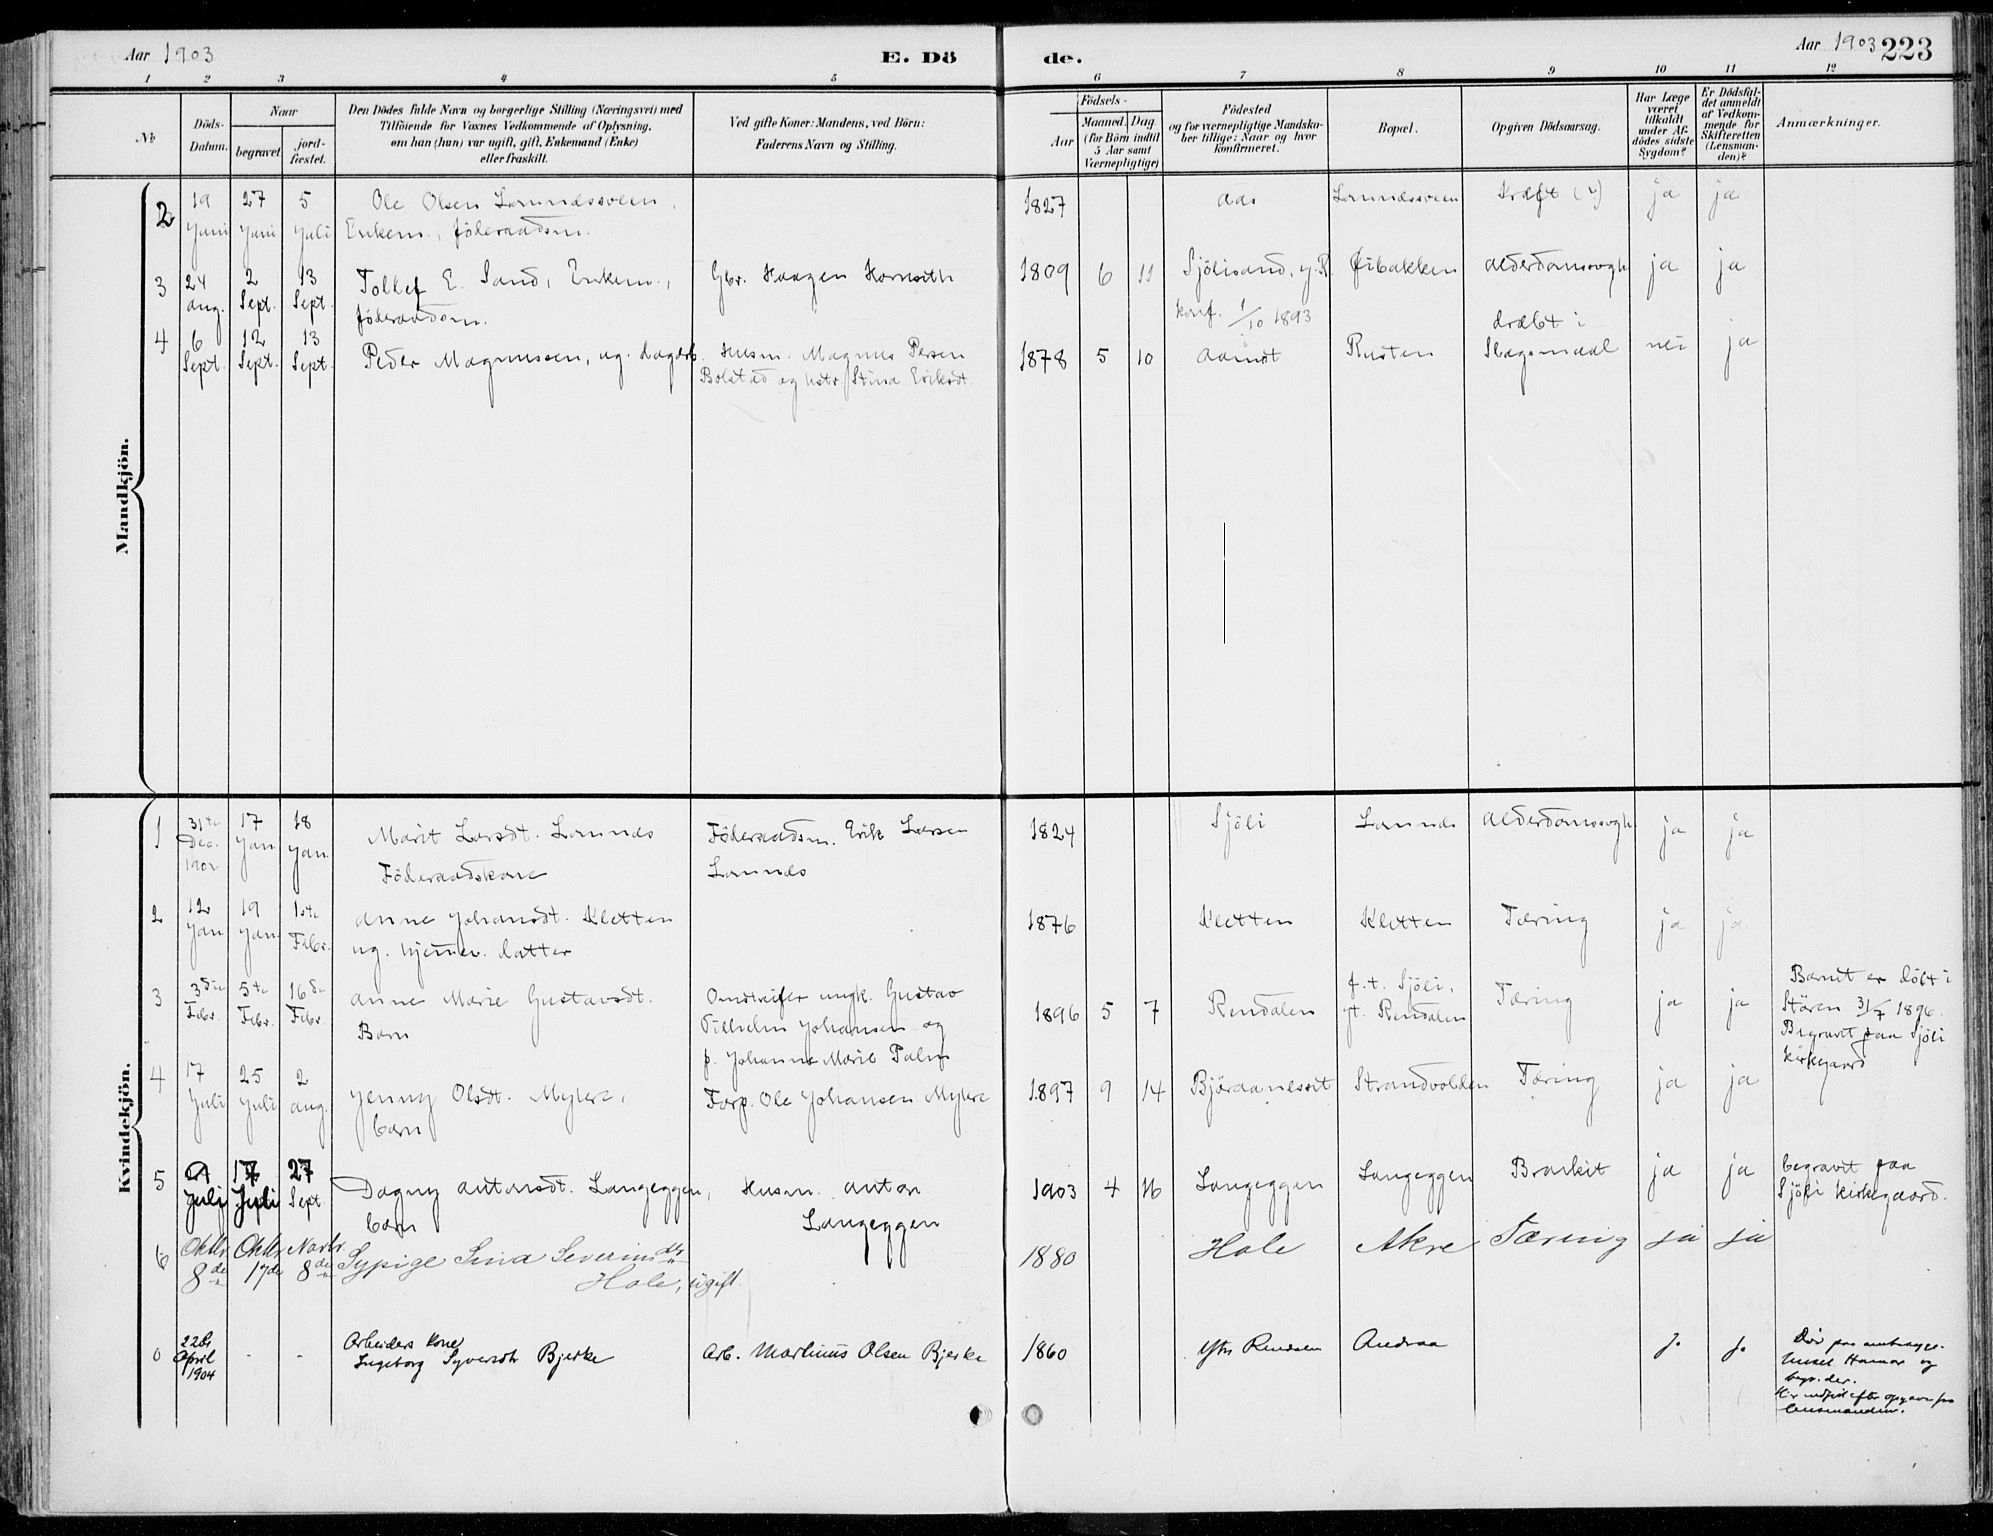 Aar 1903
E. Dö
de.
Aar 1903 223
1 2 3 4 5 6 7 8 9 10 11 12
No
Döds-
Datum.
Naar
begravet.
jord-
fæstet.
Den Dödes fulde Navn og borgerlige Stilling (Næringsvei) med
Tilföiende for Voxnes Vedkommende af Oplysning,
om han (hun) var ugift, gift, Enkemand (Enke)
eller fraskilt.
Ved gifte Koner: Mandens, ved Börn:
Faderens Navn og Stilling.
Födsels-
Aar
Maaned. Dag.
(for Börn indtil
5 Aar samt
Værnepligtige)
Födested
og for værnepligtige Mandska-
ber tillige: Naar og hvor
konfirmeret.
Bopæl.
Opgiven Dödsaarsag.
Har Læge
været
tilkaldt
under Af-
dödes sidste
Sygdom?
Er Dödsfal-
det anmeldt
af Vedkom-
mende for
Skifteretten
(Lensman-
den)?
Anmærkninger.
Mandkjön.
2 19 27 5 Ole Olsen 1827 Aas Kræft (?) ja ja
Juni Juni Juli Enkem., föderaadsm.
3 24 2 13 Tollef E. Sand, Enkem., Gbr. Haagen 1809 6 11 ja ja
Aug. Sept. Sept. föderaadsm. konf. 1/10 1893
4 6 12 13 Peder Magnussen, ug. dagarb. Husm. Magnus Persen 1878 5 10 Rusten dræbt i
Sept. Sept. Sept. Bolstad og hstr. Stina Eriksdt. Slagsmaal nei ja
Kvindekjön.
1 31te 17 18 Marit Larsdt. Lomnes Föderaadsm. Erik Larsen 1824 Sjöli Lomnes ja ja
Dec. Jan. Jan. Föderaadskone Lomnes
1902
2 12 19 1ste Anne Johansdt. Kletten 1876 Kletten Kletten Tæring ja ja
Jan. Jan. Febr. ug. hjemmev. datter
3 3die 5te 16de Anne Marie Gustavsdt. Omstreifer ungk. Gustav 1896 5 7 Rendalen f. t. Sjöli, Tæring ja ja Barnet er döbt i
Febr. Febr. Febr. Barn Vilhelm Johansen og Rendalen Stören 31/7 1896.
p. Johanne Marie Palm Begravet paa Sjöli
kirkegaard
4 17 25 2 Jenny Olsdt. Myhre, Forp. Ole Johansen Myhre 1897 9 14 Björaanesset Strandvolden Tæring ja ja
Juli Juli Aug. barn
5 17 27 Dagny Antonsdt. Langeggen, Husm. Anton 1903 4 16 Langeggen Langeggen ja ja begravet paa
Juli Juli Sept. barn Langeggen Sjöli kirkegaard.
6 Oktbr. Oktbr. Novbr. Sypige Sina Severinsdtr. 1880 Hole Akre Tæring ja ja
8de 17de 8de Hole, ugift.
0 22de - - Arbeiders kone Arb. Martinus Olsen Bjerke 1860 Ytre Rendalen ja ja
April Ingeborg Syversdtr Bjerke
1904 Hamar og
begr. der.
lensmanden.